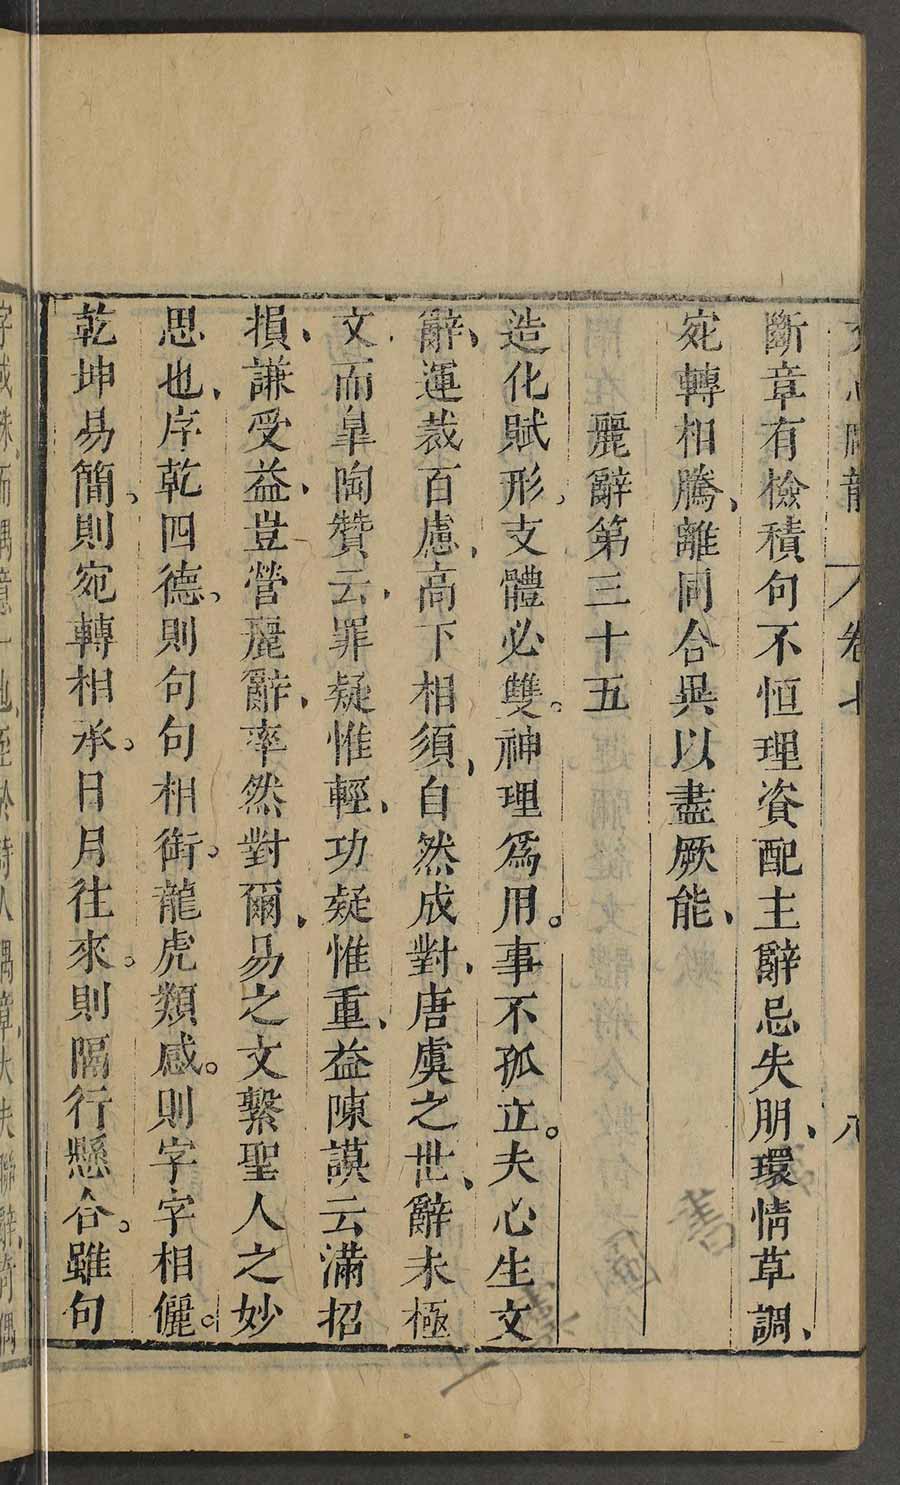 卷七
八
斷章有檢積句不恒理資配主辭忌失朋、環情草調、
宛轉相騰、離同合異以盡厥能、
麗辭第三十五
造化賦形、支體必雙。神理爲用。事不孤立。夫心生文
辭、運裁百慮、高下相須、自然成對、唐虞之世、辭未極
文、而臯陶贊云、罪疑惟輕、功疑惟重、益陳謨云滿招
損、謙受益、豈營麗辭、率然對爾、易之文繫聖人之妙
思也、序乾四德、則句句相銜。龍虎類感。則字字相儷。
乾坤易簡、則宛轉相承。日月往來。則隔行懸合。雖句